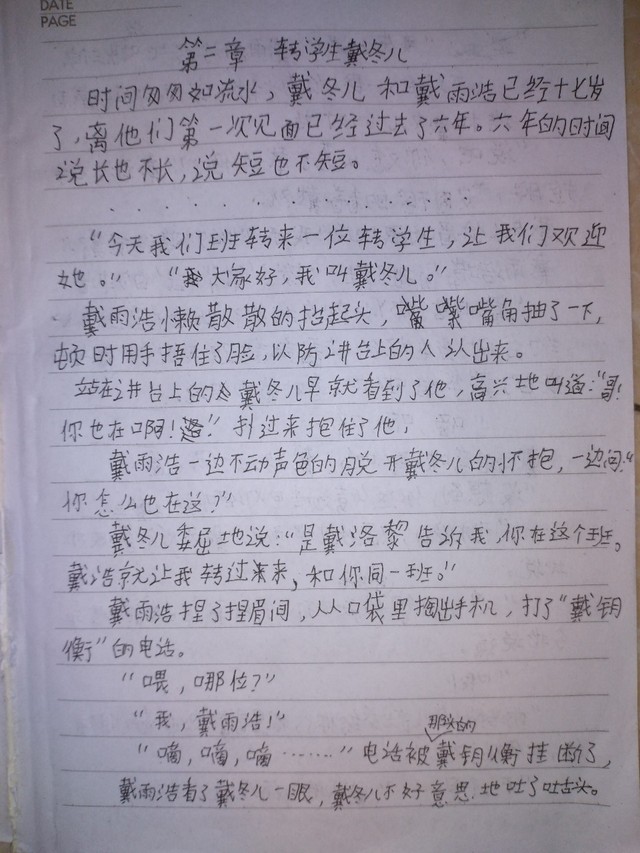 DATE
PAGE
第二章 转学生戴冬儿
时间匆匆如流水，戴冬儿和戴雨浩已经十七岁
了，离他们第一次见面已经过去了六年。六年的时间
说长也不长，说短也不短。
. . . . . . . . . . . . . . .
“今天我们班转来一位转学生，让我们欢迎
她。” “大家好，我叫戴冬儿。”
戴雨浩懒散散的抬起头，嘴角抽了一下，
顿时用手捂住了脸，以防讲台上的人认出来。
站在讲台上的戴冬儿早就看到了他，高兴地叫道：“哥！
你也在啊！”扑过来抱住了他，
戴雨浩一边不动声色的脱开戴冬儿的怀抱，一边问：“
你怎么也在这？”
戴冬儿委屈地说：“是戴洛黎告诉我，你在这个班。
戴浩就让我转过来，和你同一班。”
戴雨浩捏了捏眉间，从口袋里掏出手机，打了“戴钥
衡”的电话。
“喂，哪位？”
“我，戴雨浩！”
“嘀，嘀，嘀……”电话被那边的戴钥衡挂断了，
戴雨浩看了戴冬儿一眼，戴冬儿不好意思地吐了吐舌头。